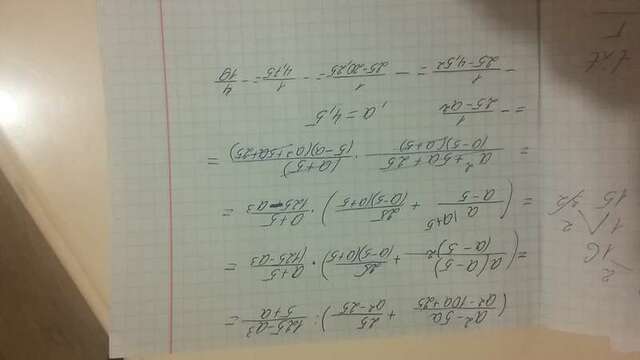 (a²-5a / a²-10a+25 + 25 / a²-25) : 125-a³ / 5+a =
= (a(a-5) / (a-5)² + 25 / (a-5)(a+5)) · a+5 / (125-a³ =
= (a |a+5 / a-5 + 25 / (a-5)(a+5)) · a+5 / 125-a³ =
= a²+5a+25 / (a-5)(a+5) · (a+5) / (5-a)(a²+5a+25) =
= - 1 / 25-a² , a=4,5
- 1 / 25-4,5² = - 1 / 25-20,25 = - 1 / 4,75 = - 4 / 19
2
16
1 2
15